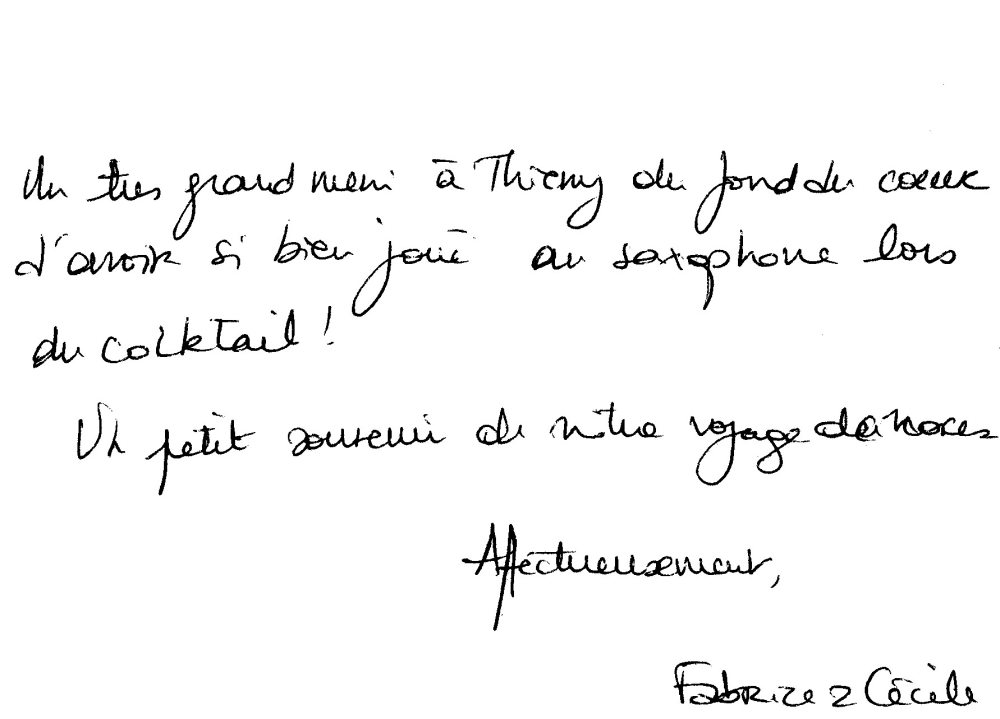 Un très grand merci à Thierry du fond du coeur
d'avoir si bien joué au saxophone lors
du cocktail !
Un petit souvenir de notre voyage de noces
Affectueusement,
Fabrice & Cécile